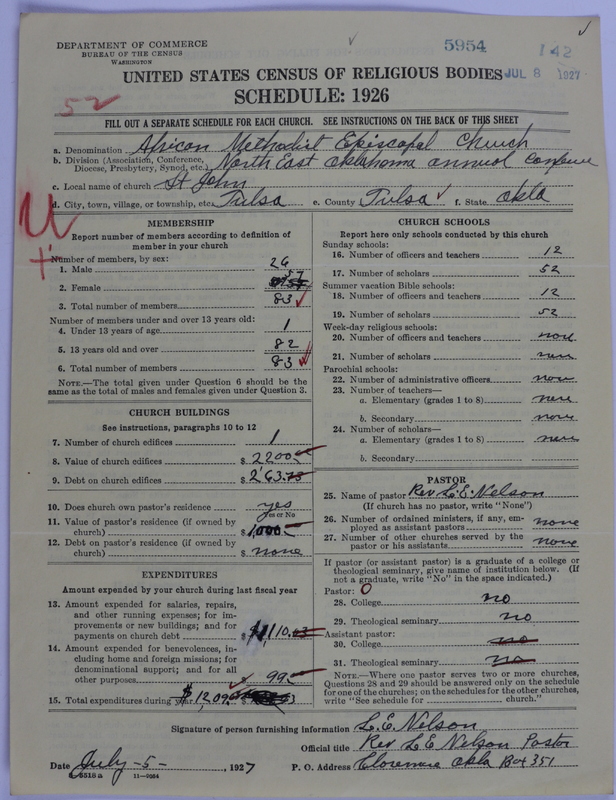 DEPARTMENT OF COMMERCE
BUREAU OF THE CENSUS
WASHINGTON
5954
142
JUL 8 1927
UNITED STATES CENSUS OF RELIGIOUS BODIES
SCHEDULE: 1926
52
FILL OUT A SEPARATE SCHEDULE FOR EACH CHURCH. SEE INSTRUCTIONS ON THE BACK OF THIS SHEET
a. Denomination African Methodist Episcopal Church
b. Division (Association, Conference, Diocese, Presbytery, Synod, etc.) North East Oklahoma annual
c. Local name of church St John
d. City, town, village, or township, etc. Tulsa e. County Tulsa f. State Okla
MEMBERSHIP
Report number of members according to definition of
member in your church
Number of members, by sex:
1. Male 26
2. Female 57
3. Total number of members 83
Number of members under and over 13 years old:
4. Under 13 years of age 1
5. 13 years old and over 82
6. Total number of members 83
NOTE.—The total given under Question 6 should be the
same as the total of males and females given under Question 3.
CHURCH BUILDINGS
See instructions, paragraphs 10 to 12
7. Number of church edifices 1
8. Value of church edifices $ 2200
9. Debt on church edifices $ 263.
10. Does church own pastor's residence yes
Yes or No
11. Value of pastor's residence (if owned by
church) $ 1,000
12. Debt on pastor's residence (if owned by
church) $ none
EXPENDITURES
Amount expended by your church during last fiscal year
13. Amount expended for salaries, repairs,
and other running expenses; for im-
provements or new buildings; and for
payments on church debt $ 1,110.
14. Amount expended for benevolences, in-
cluding home and foreign missions; for
denominational support; and for all
other purposes $ 99
15. Total expenditures during year $ 1209
CHURCH SCHOOLS
Report here only schools conducted by this church
Sunday schools:
16. Number of officers and teachers 12
17. Number of scholars 52
Summer vacation Bible schools:
18. Number of officers and teachers 12
19. Number of scholars 52
Week-day religious schools:
20. Number of officers and teachers none
21. Number of scholars none
Parochial schools:
22. Number of administrative officers none
23. Number of teachers—
a. Elementary (grades 1 to 8) none
b. Secondary none
24. Number of scholars—
a. Elementary (grades 1 to 8) none
b. Secondary
PASTOR
25. Name of pastor Rev L. E. Nelson
(If church has no pastor, write "None")
26. Number of ordained ministers, if any, em-
ployed as assistant pastors none
27. Number of other churches served by the
pastor or his assistants none
If pastor (or assistant pastor) is a graduate of a college or
theological seminary, give name of institution below. (If
not a graduate, write "No" in the space indicated.)
Pastor: 0
28. College no
29. Theological seminary no
Assistant pastor:
30. College no
31. Theological seminary no
NOTE.—Where one pastor serves two or more churches,
Questions 28 and 29 should be answered only on the schedule
for one of the churches; on the schedules for the other churches,
write "See schedule for church."
Signature of person furnishing information L. E. Nelson
Official title Rev L E Nelson Pastor
Date July -5-, 1927 P. O. Address Okla Box 351
8-5518 a 11-9064